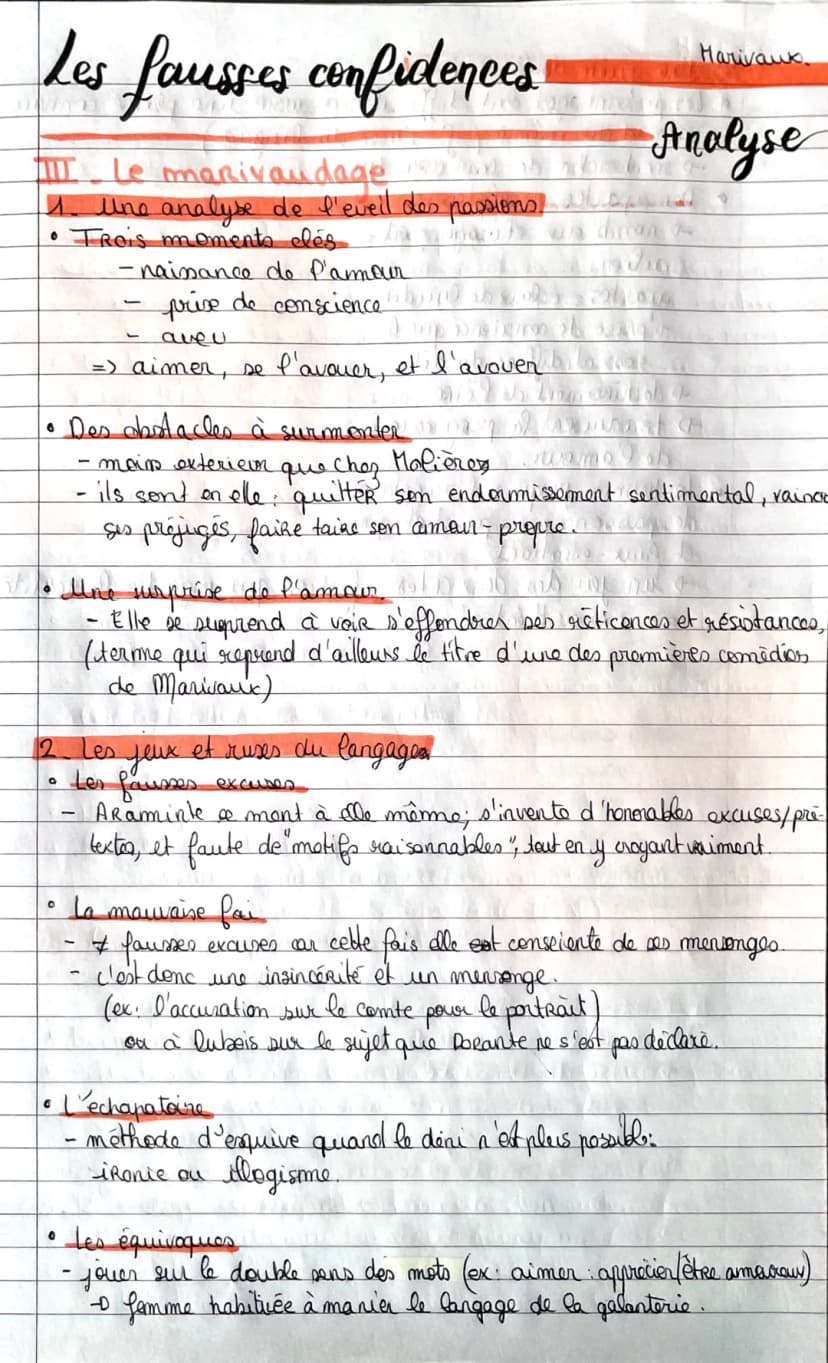 Les fausses confidences
Marivaux.
Analyse
III - Le marivaudage
1. Une analyse de l'eveil des passions
• Trois moments clés
- naissance de l'amour
- prise de conscience
- aveu
=> aimer, se l'avouer, et l'avouer
• Des obstacles à surmonter
- moins exterieur que chez Molière
- ils sont en elle : quitter son endormissement sentimental, vaincre
ses préjugés, faire taire son amour-propre.
• Une surprise de l'amour.
- Elle se surprend à voir s'effondrer ses réticences et résistances,
(terme qui reprend d'ailleurs le titre d'une des premières comédies
de Marivaux)
2. Les jeux et ruses du langage
• Les fausses excuses
- Araminte se ment à elle même; s'invente d'honorables excuses/pré-
textes, et faute de "motifs raisonnables", tout en y croyant vraiment.
• La mauvaise foi
- ≠ fausses excuses car cette fois elle est consciente de ses mensonges.
- c'est donc une insincérité et un mensonge.
(ex: l'accusation sur le comte pour le portrait)
ou à Dubois sur le sujet que Dorante ne s'est pas déclaré.
• L'échapatoire
- méthode d'esquive quand le déni n'est plus possible:
ironie ou illogisme.
• Les équivoques
- jouer sur le double sens des mots (ex: aimer : apprécier/être amoureux)
→ femme habituée à manier le langage de la galanterie.